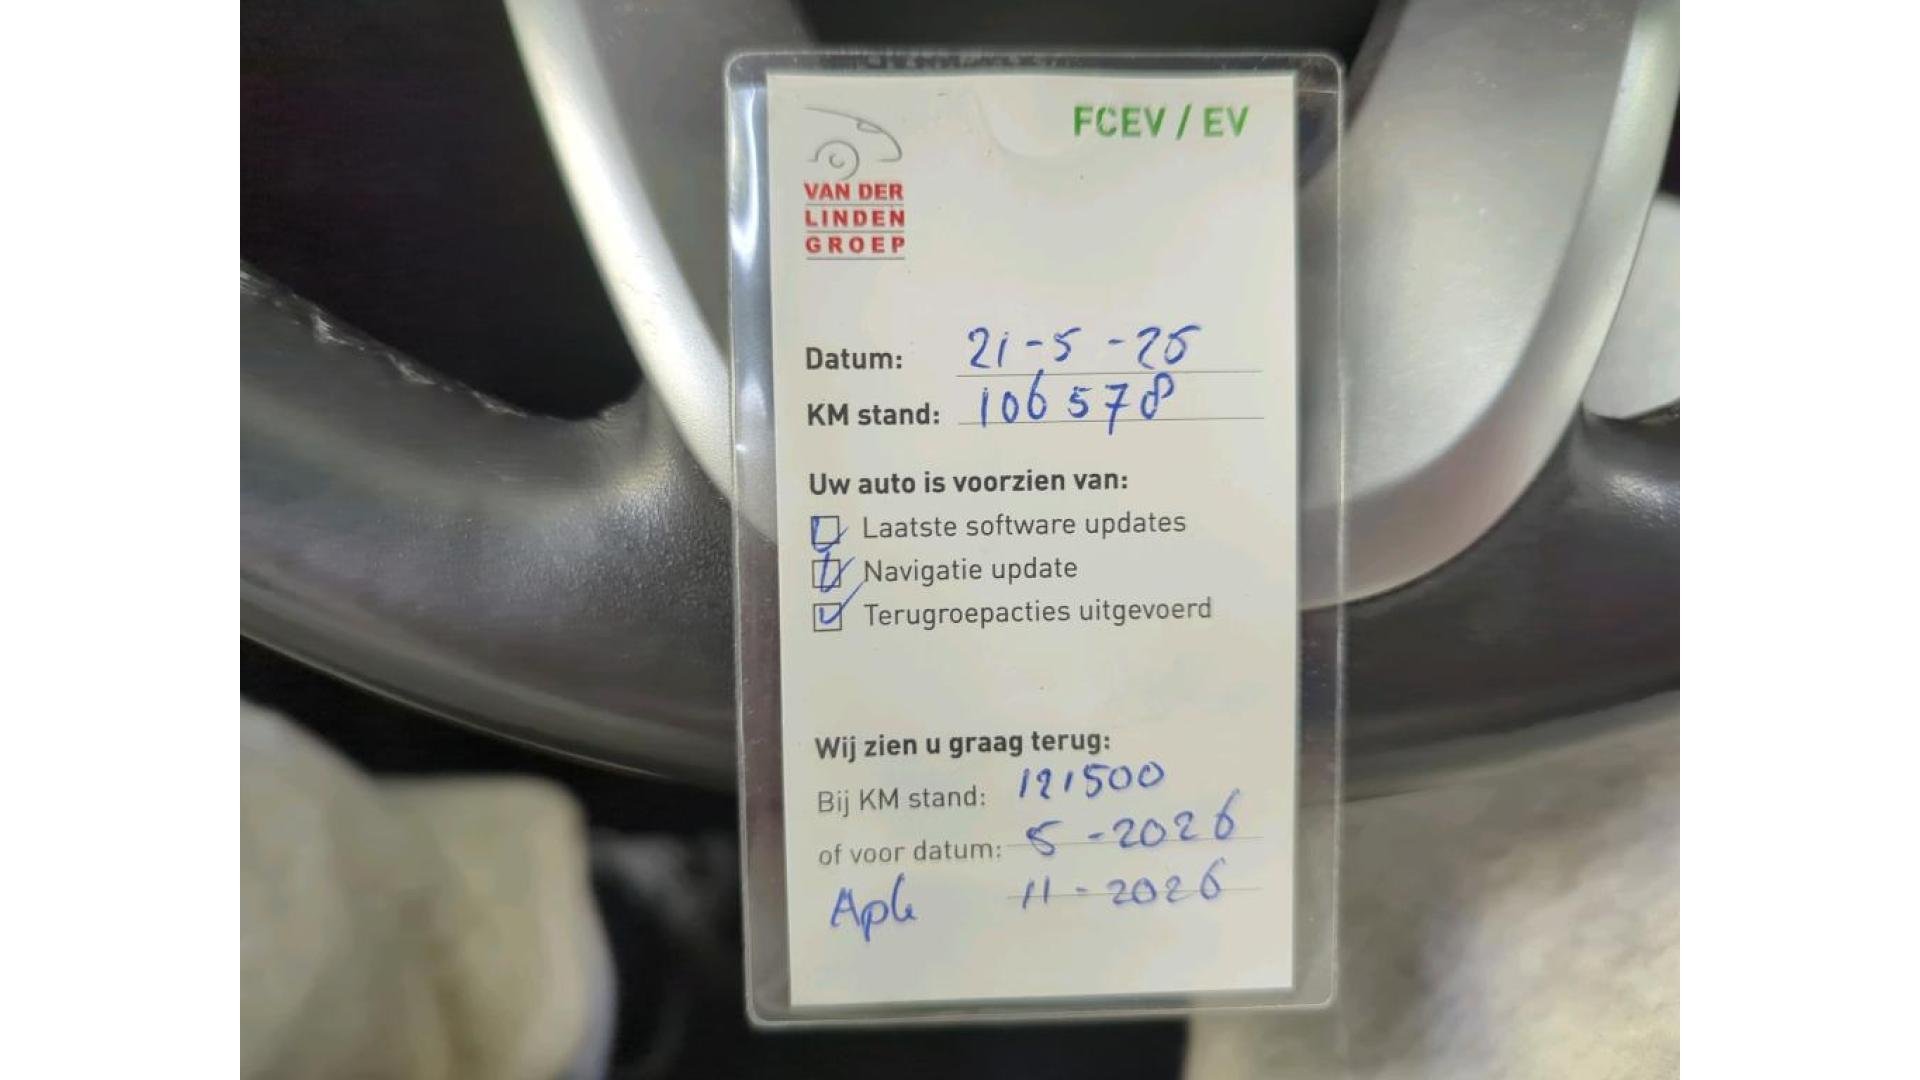 FCEV / EV
VAN DER
LINDEN
GROEP
Datum: 21-5-25
KM stand: 106578
Uw auto is voorzien van:
Laatste software updates
Navigatie update
Terugroepacties uitgevoerd
Wij zien u graag terug:
Bij KM stand: 121500
of voor datum: 5-2026
Apk 11-2026